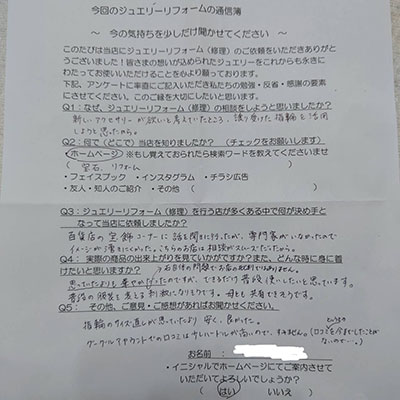 今回のジュエリーリフォームの通信簿
～ 今の気持ちを少しだけ聞かせてください ～
このたびは当店にジュエリーリフォーム（修理）のご依頼をいただきありがと
うございました！皆さまの想いが込められたジュエリーをこれからも永きに
わたってお使いいただけることを心より願っております。
下記、アンケートに率直にご記入いただき私たちの勉強・反省・感謝の要素
にさせてください。このご縁を大切にしたいと思います。
Q1：なぜ、ジュエリーリフォーム（修理）の相談をしようと思いましたか？
新しいアクセサリーが欲しいと考えていたところ、譲り受けた指輪を活用
しようと思ったから。
Q2：何で（どこで）当店を知りましたか？ （チェックをお願いします）
・ホームページ ※もし覚えておられたら検索ワードを教えてくださいませ
（ 宝石 リフォーム ）
・フェイスブック ・インスタグラム ・チラシ広告
・友人・知人のご紹介 ・その他（ ）
Q3：ジュエリーリフォーム（修理）を行う店が多くある中で何が決め手と
なって当店に依頼しましたか？
百貨店の宝飾コーナーに話を聞きに行ったが、専門家がいなかったので
イメージが湧きにくかった。こちらのお店は相談がスムーズだったから。
Q4： 実際の商品の出来上がりを見ていかがですか？また、どんな時に身に着
けたいと思いますか？
石自体の問題でお店の
思っていたよりも華やかだったのですが、できるだけ普段使いしたいと思います。
普段の服装を考える刺激になりそうです。母とも共有できそうです。
Q5： その他、ご意見・ご感想があればお聞かせください。
指輪のサイズ直しが思っていたより安く、良かった。
グーグルアカウントでの口コミは少しハードルが高いので、すみません。
（口コミを今までしたことが
ないので…。）
お名前：
・イニシャルでホームページにてご案内させて
いただいてよろしいでしょうか？
（ はい いいえ ）